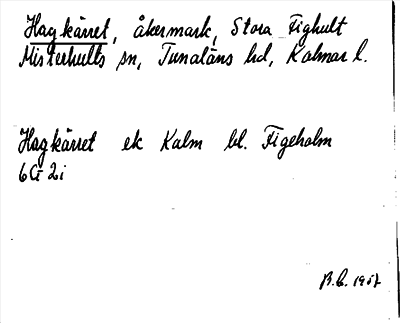 Hagkärret, åkermark, Stora Fighult
Misterhults sn, Tunaläns hd, Kalmar l.
Hagkärret ek Kalm bl. Figeholm
6G 2i
B.C. 1957